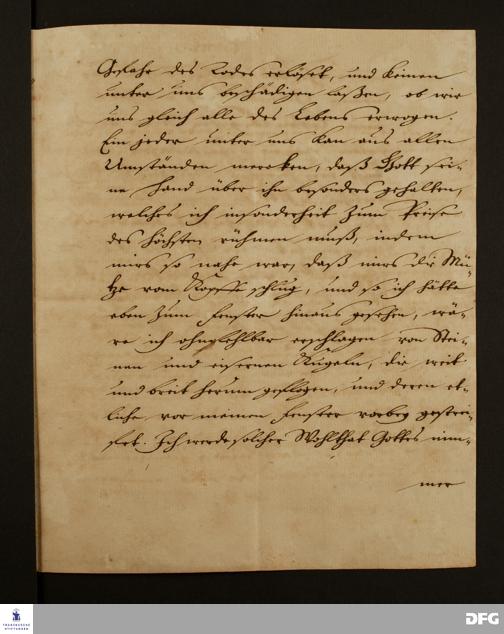 Gefahr des Todes erlöset, und keinen
unter uns beschädigen laßen, ob wir
uns gleich alle des Lebens erwogen.
Ein jeder unter uns kan aus allen
Umständen mercken, daß Gott sei-
ne Hand über ihn besonders gehalten,
welches ich insonderheit zum Preise
des Höchsten rühmen muß, indem
mirs so nahe war, daß mirs die Mü-
tze vom Kopffe schlug, und so ich hätte
eben zum Fenster hinaus gesehen, wä-
re ich ohnfehlbar erschlagen von Stei-
nen und eisernen Kugeln, die weit
und breit herum geflogen, und deren et-
liche vor meinen Fenster vorbey gestrei-
fet. Ich werde solicher Wohlthat Gottes nim-
mer
FRANCKESCHE STIFTUNGEN
DFG